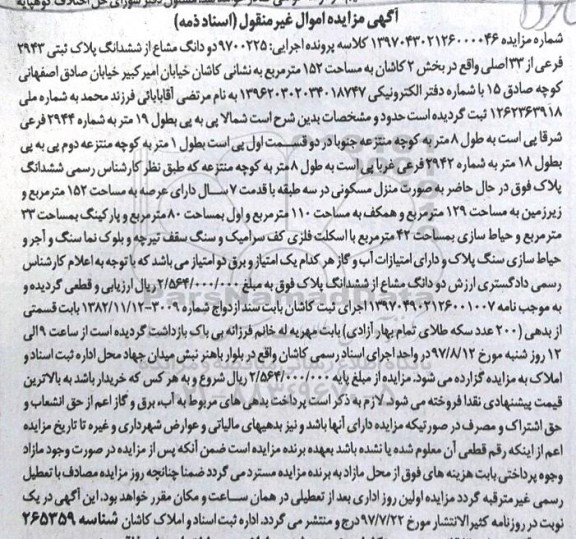 آگهی مزایده اموال غیر منقول (اسناد ذمه)
شماره مزایده ۱۳۹۷۰۴۳۰۲۱۲۶۰۰۰۰۴۶ کلاسه پرونده اجرایی: ۹۷۰۰۲۲۵ دو دانگ مشاع از ششدانگ پلاک ثبتی ۲۹۴۳
فرعی از ۳۳ اصلی واقع در بخش ۲ کاشان به مساحت ۱۵۲ مترمربع به نشانی کاشان خیابان امیرکبیر خیابان صادق اصفهانی
کوچه صادق ۱۵ با شماره دفتر الکترونیکی ۱۳۹۶۲۰۳۰۲۰۳۴۰۱۸۷۴۷ به نام مرتضی آقابابائی فرزند محمد به شماره ملی
۱۲۶۲۳۶۳۹۱۸ ثبت گردیده است حدود و مشخصات بدین شرح است شمالا پی به پی بطول ۱۹ متر به شماره ۲۹۴۴ فرعی
شرقا پی است به طول ۸ متر به کوچه منتزعه جنوبا در دو قسمت اول پی است بطول ۱ متر به کوچه منتزعه دوم پی به پی
بطول ۱۸ متر به شماره ۲۹۴۲ فرعی غربا پی است به طول ۸ متر به کوچه منتزعه که طبق نظر کارشناس رسمی ششدانگ
پلاک فوق در حال حاضر به صورت منزل مسکونی در سه طبقه با قدمت ۷ سال دارای عرصه به مساحت ۱۵۲ مترمربع و
زیرزمین به مساحت ۱۲۹ مترمربع و همکف به مساحت ۱۱۰ مترمربع و اول بمساحت ۸۰ مترمربع و پارکینگ بمساحت ۳۳
مترمربع و حیاط سازی بمساحت ۴۲ مترمربع با اسکلت فلزی کف سرامیک و سنگ سقف تیرچه و بلوک نما سنگ و آجر و
حیاط سازی سنگ پلاک و دارای امتیازات آب و گاز هر کدام یک امتیاز و برق دو امتیاز می باشد که با توجه به اعلام کارشناس
رسمی دادگستری ارزش دو دانگ مشاع از ششدانگ پلاک فوق به مبلغ ۲/۵۶۴/۰۰۰/۰۰۰ ریال ارزیابی و قطعی گردیده و
به موجب نامه ۱۳۹۷۰۴۹۰۲۱۲۶۰۰۱۰۰۷ اجرای ثبت کاشان بابت سند ازدواج شماره ۳۰۰۹-۱۳۸۲/۱۱/۱۲ بابت قسمتی
از بدهی (۲۰۰ عدد سکه طلای تمام بهار آزادی) بابت مهریه له خانم فرزانه بی باک بازداشت گردیده است از ساعت ۹ الی
۱۲ روز شنبه مورخ ۹۷/۸/۱۲ در واحد اجرای اسناد رسمی کاشان واقع در بلوار باهنر نبش میدان جهاد محل اداره ثبت اسناد و
املاک به مزایده گزارده می شود. مزایده از مبلغ پایه ۲/۵۶۴/۰۰۰/۰۰۰ ریال شروع و به هر کس که خریدار باشد به بالاترین
قیمت پیشنهادی نقدا فروخته می شود. لازم به ذکر است پرداخت بدهی های مربوط به آب، برق و گاز اعم از حق انشعاب و
حق اشتراک و مصرف در صورتیکه مزایده دارای آنها باشد و نیز بدهیهای مالیاتی و عوارض شهرداری و غیره تا تاریخ مزایده
اعم از اینکه رقم قطعی آن معلوم شده یا نشده باشد بعهده برنده مزایده است ضمن آنکه پس از مزایده در صورت وجود مازاد
وجوه پرداختی بابت هزینه های فوق از محل مازاد به برنده مزایده مسترد می گردد ضمنا چنانچه روز مزایده مصادف با تعطیل
رسمی غیر مترقبه گردد مزایده اولین روز اداری بعد از تعطیلی در همان ساعت و مکان مقرر خواهد بود. این آگهی در یک
نوبت در روزنامه کثیرالانتشار مورخ ۹۷/۷/۲۲ درج و منتشر می گردد. اداره ثبت اسناد و املاک کاشان شناسه ۲۶۵۳۵۹